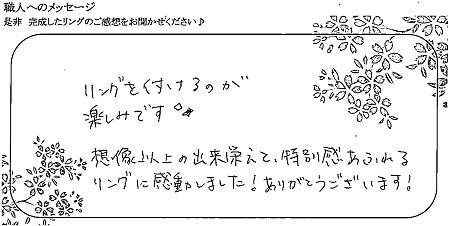 職人へのメッセージ
是非 完成したリングのご感想をお聞かせください♪
リングを付けるのが
楽しみです
想像以上の出来栄えで、特別感あふれる
リングに感動しました!ありがとうございます!